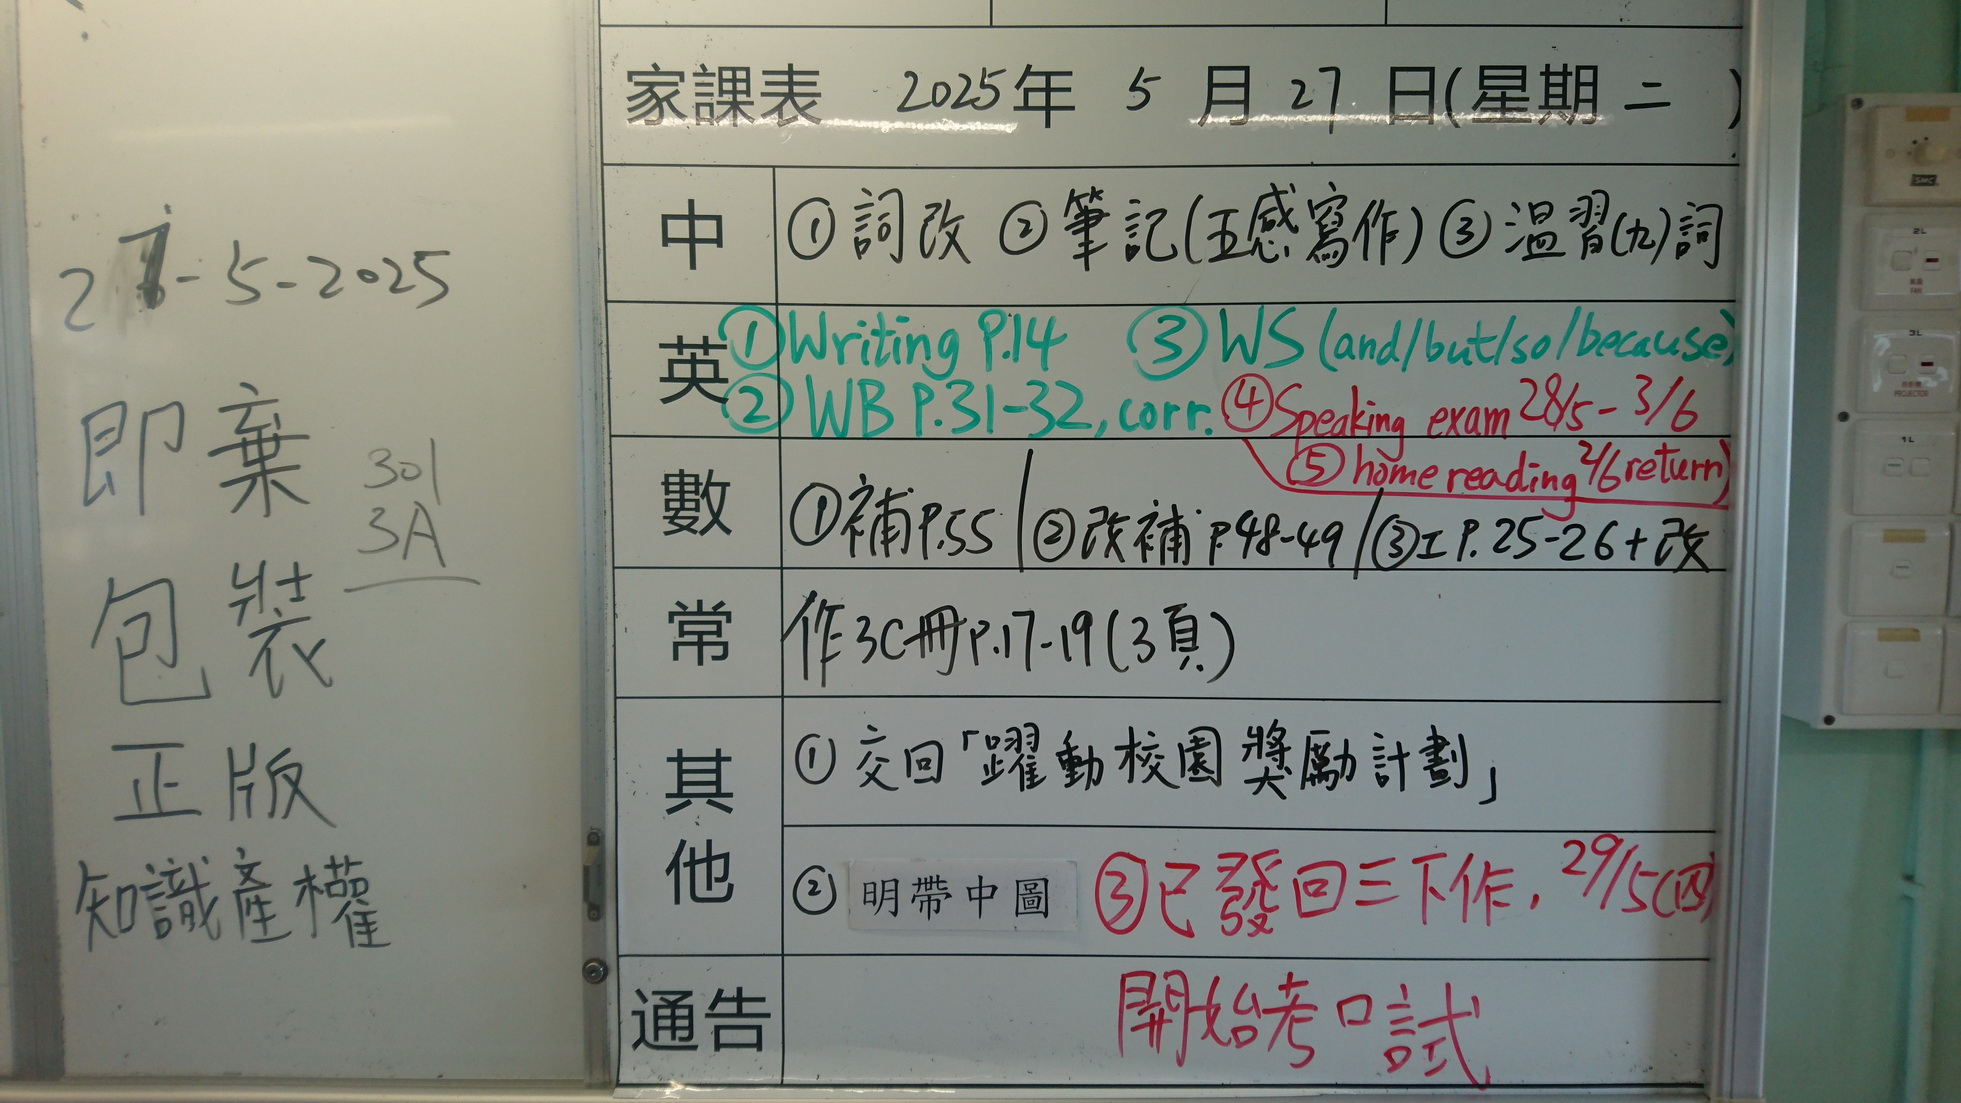 27-5-2025
即棄
包裝
301
3A
正版
知識產權
家課表 2025年 5 月 27 日(星期 二 )
中 ①詞改 ②筆記(五感寫作) ③溫習(九)詞
英 ①Writing P.14 ③WS (and/but/so/because)
②WB P.31-32, corr. ④Speaking exam 28/5 - 3/6
⑤home reading 2/6 return
數 ①補P.55 / ②改補 P.48-49 / ③工 P.25-26+改
常 作3C冊P.17-19(3頁)
其他 ①交回「躍動校園獎勵計劃」
②明帶中圖 ③已發回三下作, 29/5(四)
開始考口試
通告
SMC
2L
3L
PROJECTOR
1L